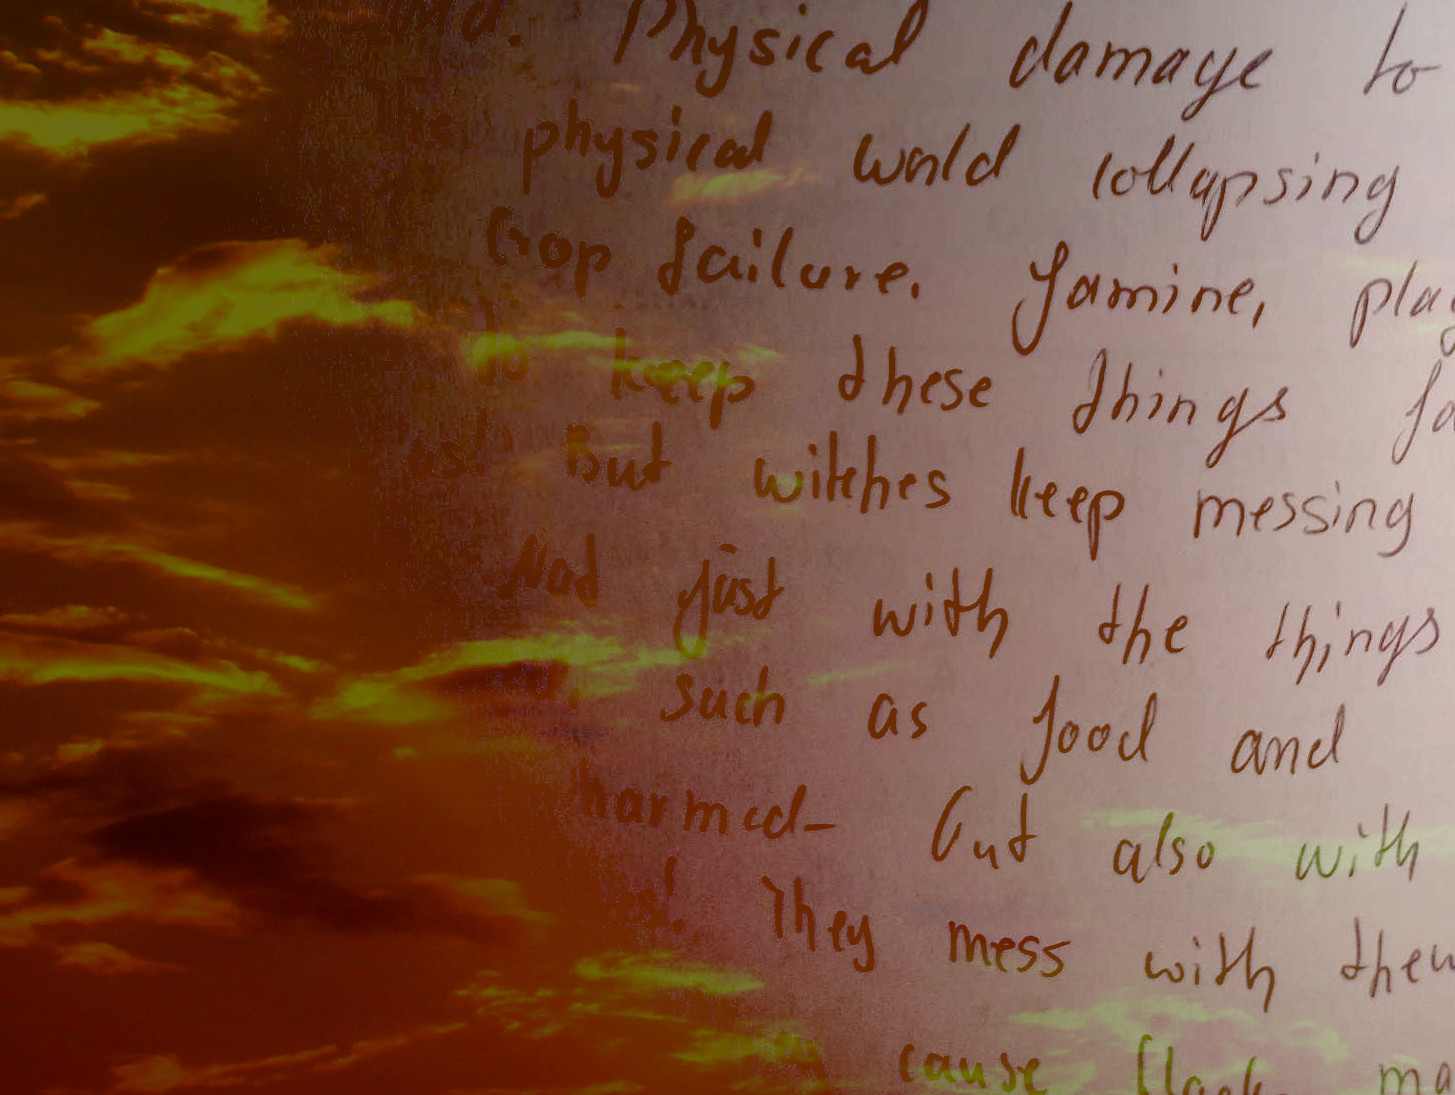 Physical damage to
physical world collapsing
Crop failure. famine, pla
to keep these things fa
as! But witches keep messing
Not just with the things
such as food and
harmed- but also with
They mess with them
cause black ma